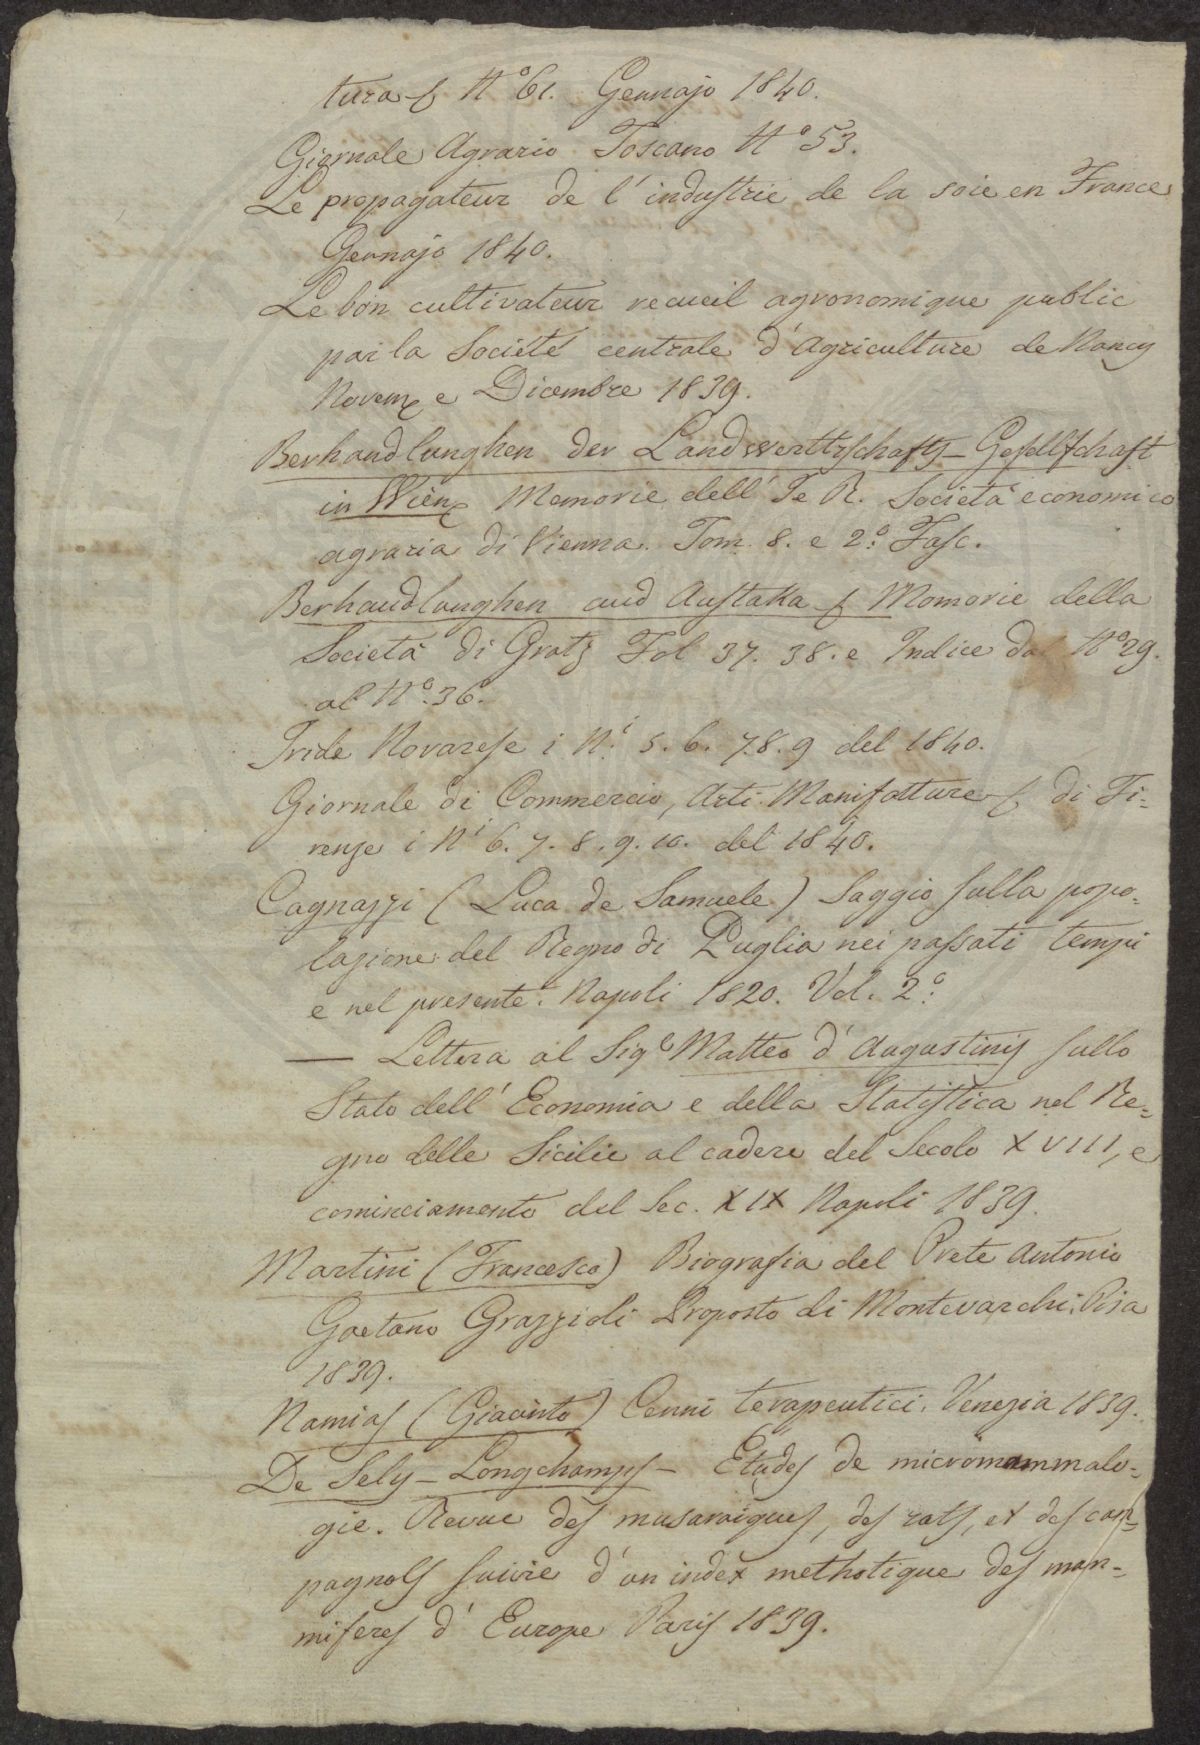 tura & N° 61. Gennajo 1840.
Giornale Agrario Toscano N° 53.
Le propagateur de l'industrie de la soie en France
Gennajo 1840.
Le bon cultivateur recueil agronomique public
par la Societé centrale d'Agriculture de Nancy
Novem e Dicembre 1839.
Berhandlunghen der Landwerttschafts-Gesellschaft
in Wien Memorie dell' I e R. Società economico
agraria di Vienna. Tom. 8. e 2.° Fasc.
Berhaudlunghen aud Austaka & Momorie della
Società di Gratz Fol 37. 38. e Indice dal N° 29.
al N°. 36.
Iride Novarese i N.i 5. 6. 7.8. 9 del 1840.
Giornale di Commercio, Arti Manifatture & di Fi-
renze i Ni 6. 7. 8. 9. 10. del 1840.
Cagnazzi (Luca de Samuele) Saggio sulla popo-
lazione del Regno di Puglia nei passati tempi
e nel presente. Napoli 1820. Vol. 2.°
— Lettera al Sige Matteo d'Augustinis sullo
Stato dell'Economia e della Statistica nel Re-
gno delle Sicilie al cadere del Secolo XVIII, e
cominciamento del Sec. XIX Napoli 1839.
Martini (Francesco) Biografia del Prete Antonio
Gaetano Grazzioli Proposto di Montevarchi. Pisa
1839.
Namias (Giacinto) Cenni terapeutici. Venezia 1839.
De Sely-Longchamps - Etudes de micromammalo-
gie. Revue des musaraigues, des rats, et des cam-
pagnols suivie d'un index methotique des mam-
miferes d'Europe Paris 1839.